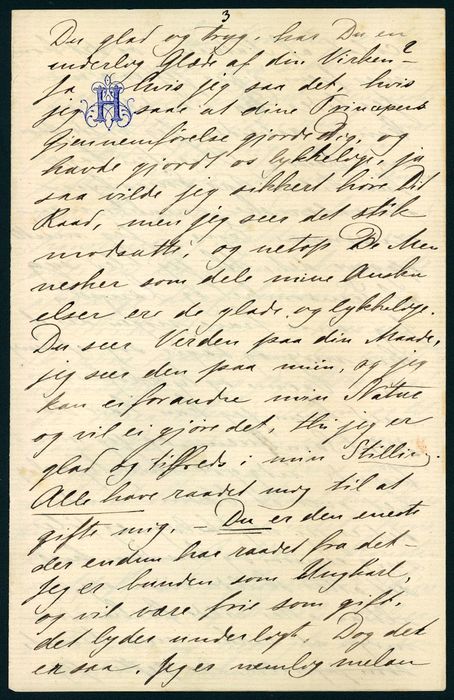 3
Du glad og tryg, har Du en
underlig Glæde af din Virken?
Ja hvis jeg saa det, hvis
H
jeg saae at dine Principers
Gjennemførelse gjorde Dig, og
havde gjort os lykkelige, ja
saa vilde jeg sikkert høre Dit
Raad, men jeg seer det stik
modsatte, og netop De Men
nesker som dele mine Ansku
elser ere de glade og lykkelige.
Du seer Verden paa din Maade,
jeg seer den paa min, og jeg
kan ei forandre min Natur
og vil ei gjøre det, thi jeg er
glad og tilfreds i min Stilling.
Alle have raadet mig til at
gifte mig, – Du er den eneste
der endnu har raadet fra det –
Jeg er bunden som Ungkarl,
og vil være frie som gift,
det lyder underligt. Dog det
er saa. Jeg er nemlig melan